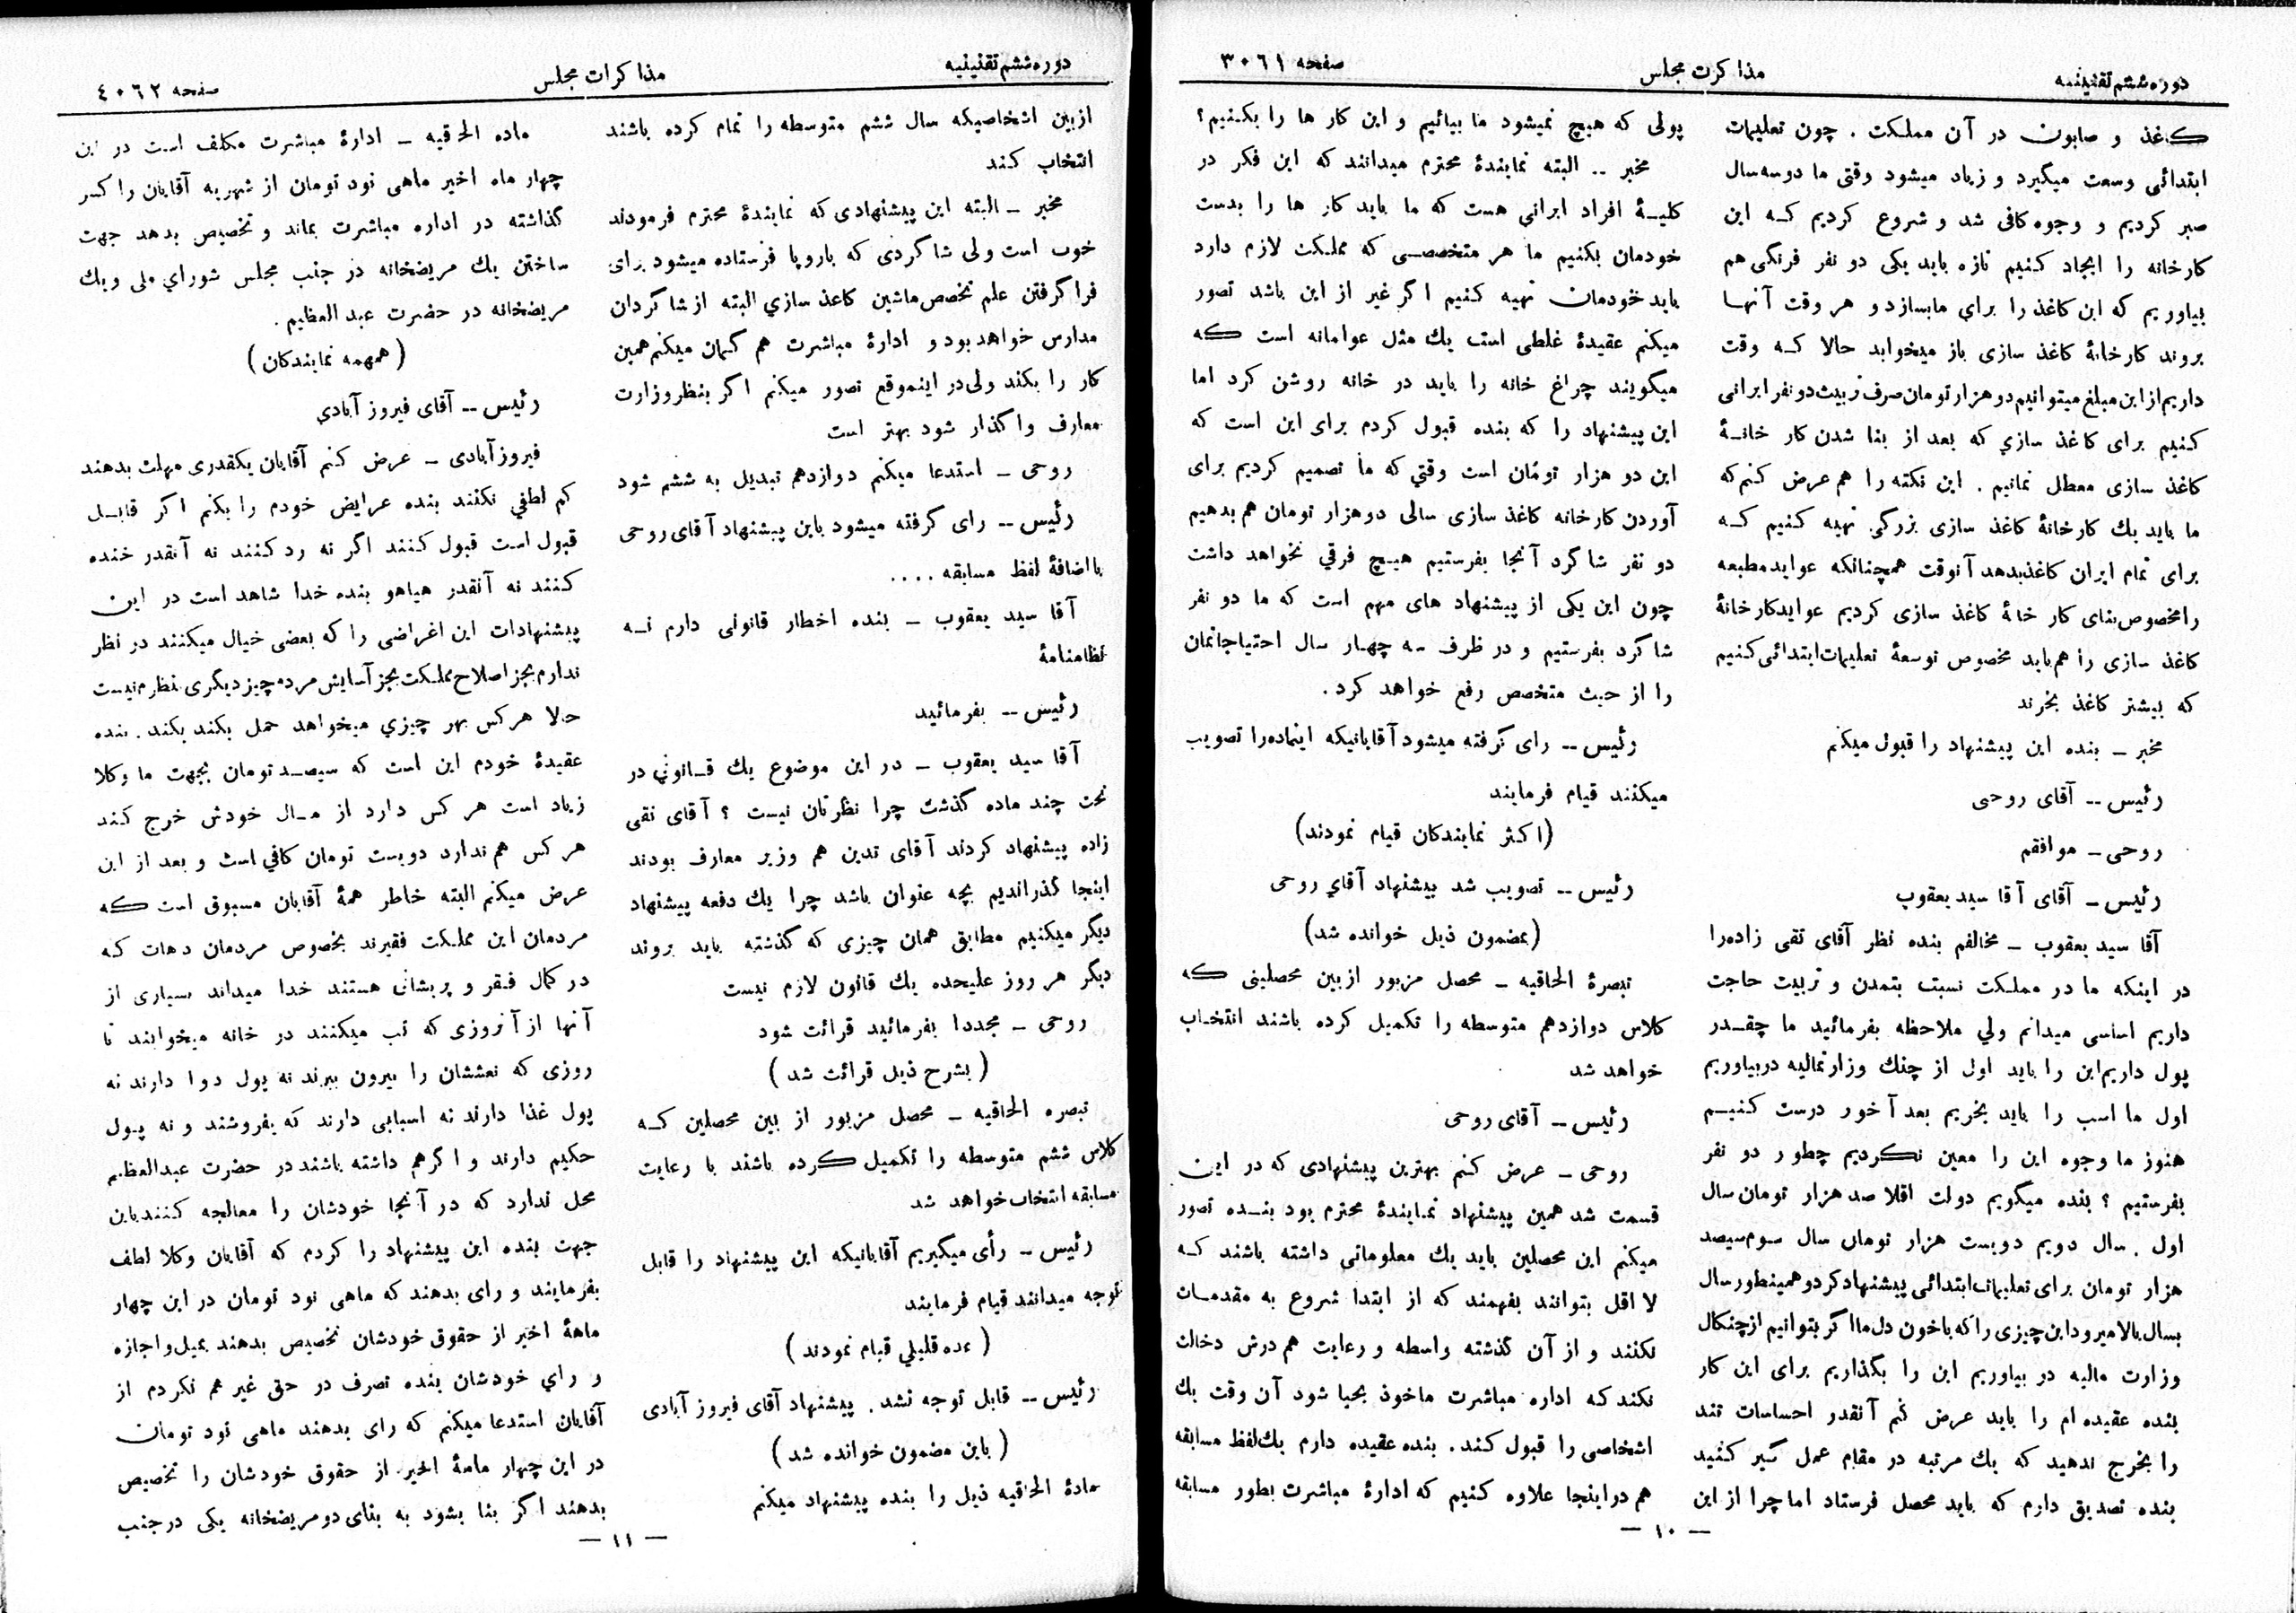 دوره ششم تقنینیه
مذاکرت مجلس
صفحه ۳۰۶۱
کاغذ و صابون در آن مملکت . چون تعلیمات
ابتدائی وسعت میگیرد و زیاد میشود وقتی ما دوسه سال
صبر کردیم و وجوه کافی شد و شروع کردیم که این
کارخانه را ایجاد کنیم تازه باید یکی دو نفر فرنگی هم
بیاوریم که این کاغذ را برای مابسازد و هر وقت آنها
بروند کارخانهٔ کاغذ سازی باز میخوابد حالا که وقت
داریم از این مبلغ میتوانیم دو هزار تومان صرف تربیت دو نفر ایرانی
کنیم برای کاغذ سازی که بعد از بنا شدن کار خانهٔ
کاغذ سازی معطل نمانیم . این نکته را هم عرض کنم که
ما باید یك کارخانهٔ کاغذ سازی بزرگی تهیه کنیم که
برای تمام ایران کاغذ بدهد آنوقت همچنانکه عواید مطبعه
را مخصوص بنای کار خانهٔ کاغذ سازی کردیم عواید کارخانهٔ
کاغذ سازی را هم باید مخصوص توسعهٔ تعلیمات ابتدائی کنیم
که بیشتر کاغذ بخرند
مخبر ـ بنده این پیشنهاد را قبول میکنم
رئیس -- آقای روحی
روحی ـ موافقم
رئیس ـ آقای آقا سید یعقوب
آقا سید یعقوب ـ مخالفم بنده نظر آقای تقی زاده را
در اینکه ما در مملکت نسبت بتمدن و تربیت حاجت
داریم اساسی میدانم ولی ملاحظه بفرمائید ما چقدر
پول داریم این را باید اول از چنك وزارتمالیه در بیاوریم
اول ما اسب را باید بخریم بعد آخور درست کنیم
هنوز ما وجوه این را معین نکردیم چطور دو نفر
بفرستیم ؟ بنده میگویم دولت اقلا صد هزار تومان سال
اول . سال دویم دویست هزار تومان سال سوم سیصد
هزار تومان برای تعلیمات ابتدائی پیشنهاد کرد و همینطور سال
بسال بالا میرود این چیزی را که با خون دل ما اگر بتوانیم از چنکال
وزارت مالیه در بیاوریم این را بگذاریم برای این کار
بنده عقیده ام را باید عرض کنم آنقدر احساسات تند
را بخرج ندهید که یك مرتبه در مقام عمل گیر کنید
بنده تصدیق دارم که باید محصل فرستاد اما چرا از این
پولی که هیچ نمیشود ما بیائیم و این کار ها را بکنیم ؟
مخبر .. البته نمایندهٔ محترم میدانند که این فکر در
کلیهٔ افراد ایرانی هست که ما باید کار ها را بدست
خودمان بکنیم ما هر متخصصی که مملکت لازم دارد
باید خودمان تهیه کنیم اگر غیر از این باشد تصور
میکنم عقیدهٔ غلطی است یك مثل عوامانه است که
میگویند چراغ خانه را باید در خانه روشن کرد اما
این پیشنهاد را که بنده قبول کردم برای این است که
این دو هزار تومان است وقتی که ما تصمیم کردیم برای
آوردن کارخانه کاغذ سازی سالی دو هزار تومان هم بدهیم
دو نفر شاگرد آنجا بفرستیم هیچ فرقی نخواهد داشت
چون این یکی از پیشنهاد های مهم است که ما دو نفر
شاگرد بفرستیم و در ظرف سه چهار سال احتیاجاتمان
را از حیث متخصص رفع خواهد کرد .
رئیس -- رای گرفته میشود آقایانیکه اینماده را تصویب
میکنند قیام فرمایند
(اکثر نمایندکان قیام نمودند)
رئیس -- تصویب شد پیشنهاد آقای روحی
(بمضمون ذیل خوانده شد)
تبصرهٔ الحاقیه ـ محصل مزبور از بین محصلینی که
کلاس دوازدهم متوسطه را تکمیل کرده باشند انتخاب
خواهد شد
رئیس -- آقای روحی
روحی ـ عرض کنم بهترین پیشنهادی که در این
قسمت شد همین پیشنهاد نمایندهٔ محترم بود بنده تصور
میکنم این محصلین باید یك معلوماتی داشته باشند که
لا اقل بتوانند بفهمند که از ابتدا شروع به مقدمات
نکنند و از آن گذشته واسطه و رعایت هم درش دخالت
نکند که اداره مباشرت ماخوذ بحیا شود آن وقت یك
اشخاصی را قبول کند . بنده عقیده دارم یك لفظ مسابقه
هم در اینجا علاوه کنیم که ادارهٔ مباشرت بطور مسابقه
— ۱۰ —
دوره ششم تقنینیه
مذاکرات مجلس
صفحه ٤٠٦٢
ازبین اشخاصیکه سال ششم متوسطه را تمام کرده باشند
انتخاب کند
مخبر ـ البته این پیشنهادی که نمایندهٔ محترم فرمودند
خوب است ولی شاگردی که باروپا فرستاده میشود برای
فرا گرفتن علم تخصص ماشین کاغذ سازی البته از شاگردان
مدارس خواهد بود و ادارهٔ مباشرت هم گمان میکنم همین
کار را بکند ولی در اینموقع تصور میکنم اگر بنظر وزارت
معارف واگذار شود بهتر است
روحی ـ استدعا میکنم دوازدهم تبدیل به ششم شود
رئیس -- رای گرفته میشود باین پیشنهاد آقای روحی
با اضافهٔ لفظ مسابقه ....
آقا سید یعقوب ـ بنده اخطار قانونی دارم نه
نظامنامهٔ
رئیس -- بفرمائید
آقا سید یعقوب ـ در این موضوع یك قانونی در
تحت چند ماده گذشت چرا نظرتان نیست ؟ آقای تقی
زاده پیشنهاد کردند آقای تدین هم وزیر معارف بودند
اینجا گذراندیم بچه عنوان باشد چرا یك دفعه پیشنهاد
دیگر میکنیم مطابق همان چیزی که گذشته باید بروند
دیگر هر روز علیحده یك قانون لازم نیست
روحی ـ مجددا بفرمائید قرائت شود
( بشرح ذیل قرائت شد )
تبصره الحاقیه ـ محصل مزبور از بین محصلین که
کلاس ششم متوسطه را تکمیل کرده باشند با رعایت
مسابقه انتخاب خواهد شد
رئیس ـ رأی میگیریم آقایانیکه این پیشنهاد را قابل
توجه میدانند قیام فرمایند
( عده قلیلی قیام نمودند )
رئیس -- قابل توجه نشد . پیشنهاد آقای فیروز آبادی
( باین مضمون خوانده شد )
مادهٔ الحاقیه ذیل را بنده پیشنهاد میکنم
ماده الحاقیه ـ ادارهٔ مباشرت مکلف است در این
چهار ماه اخیر ماهی نود تومان از شهریه آقایان را کسر
گذاشته در اداره مباشرت بماند و تخصیص بدهد جهت
ساختن یك مریضخانه در جنب مجلس شورای ملی و یك
مریضخانه در حضرت عبد العظیم .
( همهمه نمایندکان )
رئیس -- آقای فیروز آبادی
فیروزآبادی ـ عرض کنم آقایان یکقدری مهلت بدهند
کم لطفی نکنند بنده عرایض خودم را بکنم اگر قابل
قبول است قبول کنند اگر نه رد کنند نه آنقدر خنده
کنند نه آنقدر هیاهو بنده خدا شاهد است در این
پیشنهادات این اغراضی را که بعضی خیال میکنند در نظر
ندارم بجز اصلاح مملکت بجز آسایش مردم چیز دیگری نظرم نیست
حالا هرکس بهر چیزی میخواهد حمل بکند بکند . بنده
عقیدهٔ خودم این است که سیصد تومان بجهت ما وکلا
زیاد است هر کس دارد از مال خودش خرج کند
هر کس هم ندارد دویست تومان کافی است و بعد از این
عرض میکنم البته خاطر همهٔ آقایان مسبوق است که
مردمان این مملکت فقیرند بخصوص مردمان دهات که
در کمال فقر و پریشانی هستند خدا میداند بسیاری از
آنها از آنروزی که تب میکنند در خانه میخوابند تا
روزی که نعششان را بیرون ببرند نه پول دوا دارند نه
پول غذا دارند نه اسبابی دارند که بفروشند و نه پول
حکیم دارند و اگر هم داشته باشند در حضرت عبدالعظیم
محل ندارد که در آنجا خودشان را معالجه کنند باین
جهت بنده این پیشنهاد را کردم که آقایان وکلا لطف
بفرمایند و رای بدهند که ماهی نود تومان در این چهار
ماههٔ اخیر از حقوق خودشان تخصیص بدهند بمیل و اجازه
و رای خودشان بنده تصرف در حق غیر هم نکردم از
آقایان استدعا میکنم که رای بدهند ماهی نود تومان
در این چهار ماههٔ اخیر از حقوق خودشان را تخصیص
بدهند اگر بنا بشود به بنای دو مریضخانه یکی در جنب
— ۱۱ —